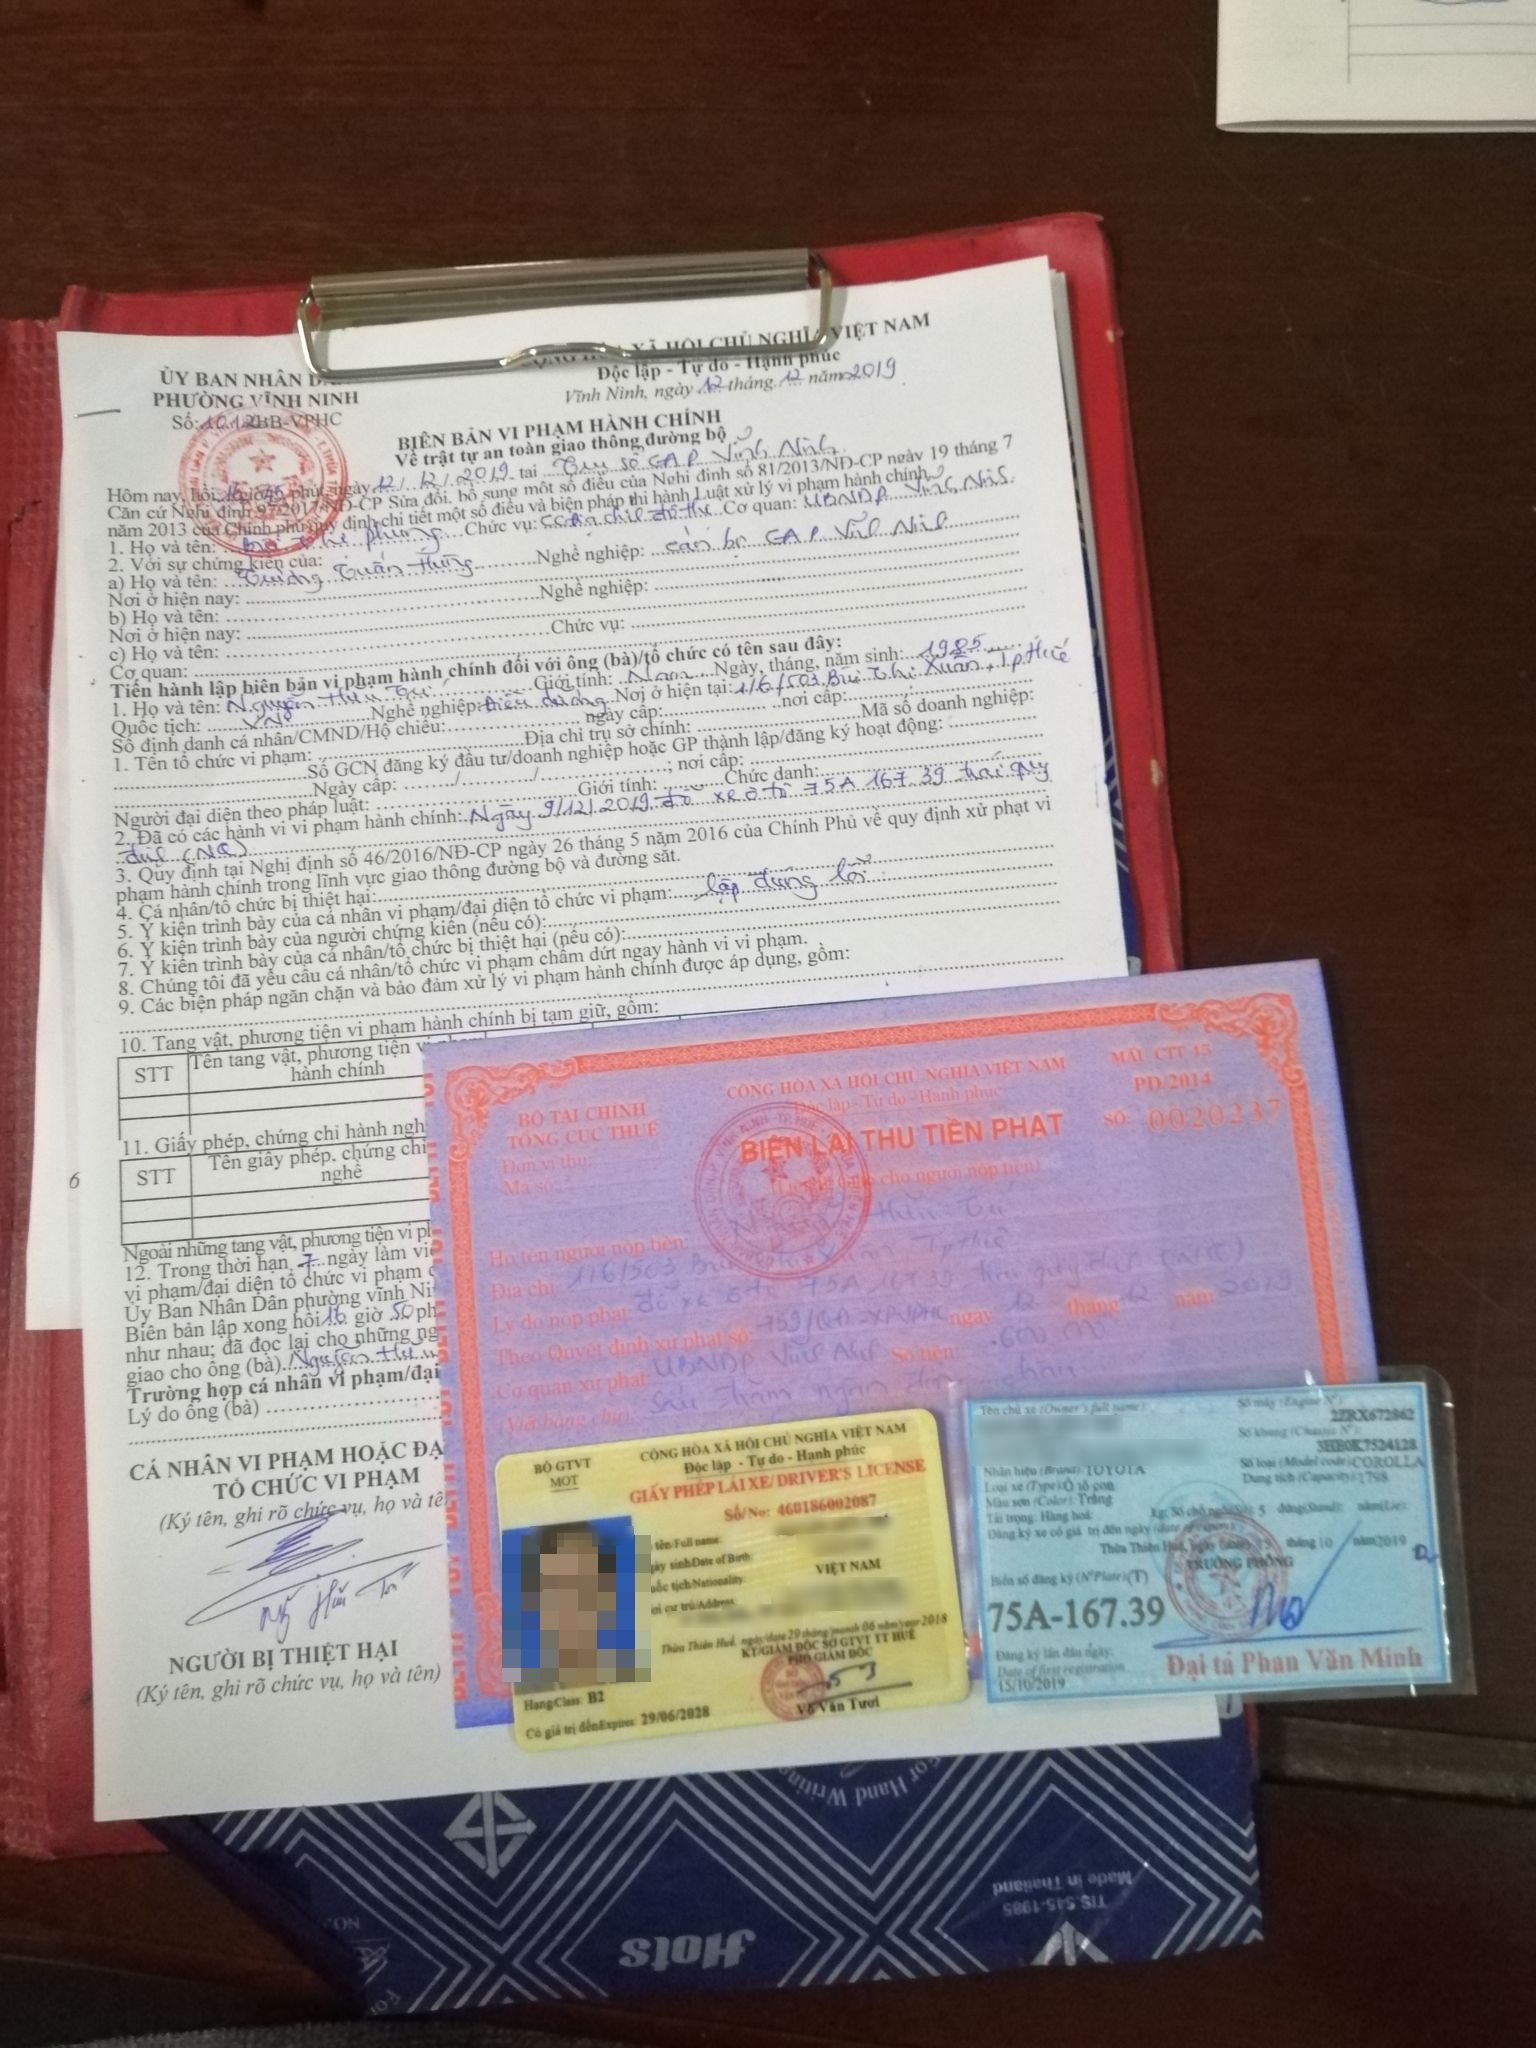 CỘNG HÒA XÃ HỘI CHỦ NGHĨA VIỆT NAM
Độc lập - Tự do - Hạnh phúc
ỦY BAN NHÂN DÂN
PHƯỜNG VĨNH NINH
Số: 1012/BB-VPHC
Vĩnh Ninh, ngày 12 tháng 12 năm 2019
BIÊN BẢN VI PHẠM HÀNH CHÍNH
Về trật tự an toàn giao thông đường bộ
Hôm nay, hồi 16 giờ 45 phút, ngày 12/12/2019 tại Trụ sở CAP Vĩnh Ninh
Căn cứ Nghị định 97/2017/NĐ-CP Sửa đổi, bổ sung một số điều của Nghị định số 81/2013/NĐ-CP ngày 19 tháng 7
năm 2013 của Chính phủ quy định chi tiết một số điều và biện pháp thi hành Luật xử lý vi phạm hành chính
1. Họ và tên: Chức vụ: đô thị Cơ quan: UBNDP Vĩnh Ninh
2. Với sự chứng kiến của:
a) Họ và tên: Trương Tuấn Hùng Nghề nghiệp: cán bộ CAP Vĩnh Ninh
Nơi ở hiện nay:
b) Họ và tên: Nghề nghiệp:
Nơi ở hiện nay:
c) Họ và tên: Chức vụ:
Cơ quan:
Tiến hành lập biên bản vi phạm hành chính đối với ông (bà)/tổ chức có tên sau đây:
1. Họ và tên: Nguyễn Hữu Tư Giới tính: Nam Ngày, tháng, năm sinh: 1985
Quốc tịch: VN Nghề nghiệp: Điều dưỡng Nơi ở hiện tại: 116/503 Bùi Thị Xuân, Tp Huế
Số định danh cá nhân/CMND/Hộ chiếu: ngày cấp: nơi cấp:
1. Tên tổ chức vi phạm: Địa chỉ trụ sở chính: Mã số doanh nghiệp:
Số GCN đăng ký đầu tư/doanh nghiệp hoặc GP thành lập/đăng ký hoạt động:
Ngày cấp: ....../....../......; nơi cấp:
Người đại diện theo pháp luật: Giới tính: Chức danh:
2. Đã có các hành vi vi phạm hành chính: Ngày 9/12/2019 đỗ xe ô tô 75A 167.39 trái quy
định (NĐ)
3. Quy định tại Nghị định số 46/2016/NĐ-CP ngày 26 tháng 5 năm 2016 của Chính Phủ về quy định xử phạt vi
phạm hành chính trong lĩnh vực giao thông đường bộ và đường sắt.
4. Cá nhân/tổ chức bị thiệt hại:
5. Ý kiến trình bày của cá nhân vi phạm/đại diện tổ chức vi phạm: lập đúng lỗi.
6. Ý kiến trình bày của người chứng kiến (nếu có):
7. Ý kiến trình bày của cá nhân/tổ chức bị thiệt hại (nếu có):
8. Chúng tôi đã yêu cầu cá nhân/tổ chức vi phạm chấm dứt ngay hành vi vi phạm.
9. Các biện pháp ngăn chặn và bảo đảm xử lý vi phạm hành chính được áp dụng, gồm:
10. Tang vật, phương tiện vi phạm hành chính bị tạm giữ, gồm:
STT Tên tang vật, phương tiện vi phạm
hành chính
11. Giấy phép, chứng chỉ hành ngh
STT Tên giấy phép, chứng chỉ
nghề
6
Ngoài những tang vật, phương tiện vi ph
12. Trong thời hạn 7 ngày làm việ
vi phạm/đại diện tổ chức vi phạm
Ủy Ban Nhân Dân phường vĩnh Ni
Biên bản lập xong hồi 16 giờ 50 ph
như nhau; đã đọc lại cho những ng
giao cho ông (bà) Nguyễn Hữu
Trường hợp cá nhân vi phạm/đại
Lý do ông (bà)
CÁ NHÂN VI PHẠM HOẶC ĐẠ
TỔ CHỨC VI PHẠM
(Ký tên, ghi rõ chức vụ, họ và tê
NGƯỜI BỊ THIỆT HẠI
(Ký tên, ghi rõ chức vụ, họ và tên)
BỘ TÀI CHÍNH
TỔNG CỤC THUẾ
CỘNG HÒA XÃ HỘI CHỦ NGHĨA VIỆT NAM
Độc lập - Tự do - Hạnh phúc
MẪU CTT 45
PD/2014
SỐ: 0020237
Đơn vị thu:
Mã số:
BIÊN LAI THU TIỀN PHẠT
(Liên 2: Giao cho người nộp tiền)
Họ tên người nộp tiền: Nguyễn Hữu Tư
Địa chỉ: 116/503 Bùi Thị Xuân Tp Huế
Lý do nộp phạt: đỗ xe ô tô 75A 167.39 trái quy định (NĐ)
Theo Quyết định xử phạt số: 759/QĐ-XPVPHC ngày 12 tháng 12 năm 2019
Cơ quan xử phạt: UBNDP Vĩnh Ninh Số tiền: 600.000
(Viết bằng chữ): Sáu trăm ngàn đồng chẵn
BỘ GTVT
MOT
CỘNG HÒA XÃ HỘI CHỦ NGHĨA VIỆT NAM
Độc lập - Tự do - Hạnh phúc
GIẤY PHÉP LÁI XE/DRIVER'S LICENSE
Số/No: 460186002087
tên/Full name:
gày sinh/Date of Birth:
uốc tịch/Nationality: VIỆT NAM
ơi cư trú/Address:
Thừa Thiên Huế, ngày/date 29 tháng/month 06 năm/year 2018
KT/GIÁM ĐỐC SỞ GTVT TT HUẾ
PHÓ GIÁM ĐỐC
Hạng/Class: B2
Có giá trị đến/Expires: 29/06/2028
Võ Văn Tươi
Tên chủ xe (Owner's full name):
Số máy (Engine N°):
2ZRX672862
Số khung (Chassis N°):
3HE0K7524128
Nhãn hiệu (Brand): TOYOTA
Số loại (Model code): COROLLA
Loại xe (Type): Ô tô con
Dung tích (Capacity): 1798
Màu sơn (Color): Trắng
Tải trọng: Hàng hoá: kg; Số chỗ ngồi (Sit): 5 đứng (Stand): nằm (Lie):
Đăng ký xe có giá trị đến ngày (date of expiry)
Thừa Thiên Huế, ngày 15 tháng 10 năm 2019
TRƯỞNG PHÒNG
Biển số đăng ký (N° Plate): (T)
75A-167.39
Đăng ký lần đầu ngày:
Date of first registration
15/10/2019
Đại tá Phan Văn Minh
For Hand Writing
Made in Thailand
TIS.545-1985
Hots
NO.